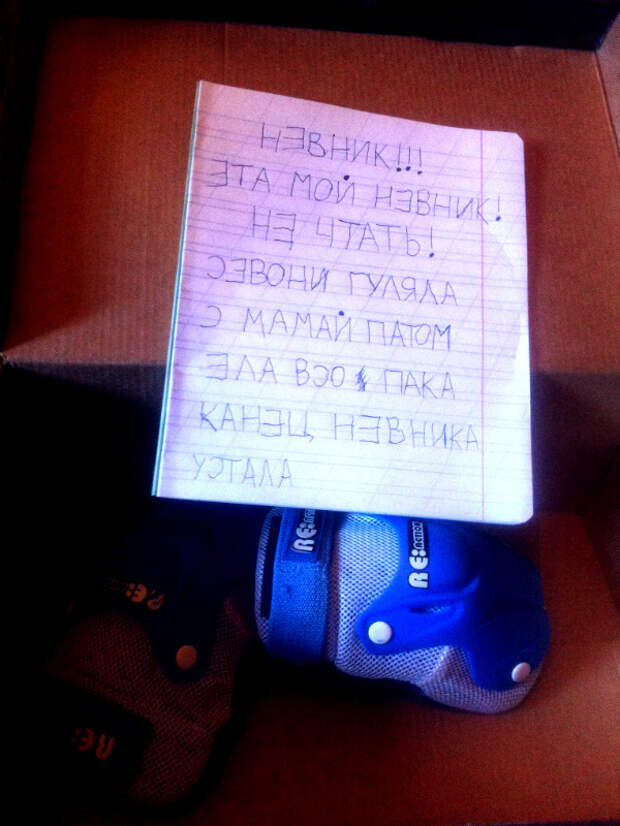 НЭВНИК!!!
ЭТА МОЙ НЭВНИК!
НЭ ЧТАТЬ!
ЭЭВОНИ ГУЛЯЛА
Э МАМАЙ ПАТОМ
ЭЛА ВЭО ПАКА
КАНЭЦ НЭВНИКА
УЭТАЛА
RE:ACTION
RE:ACTION
RE:
RE: